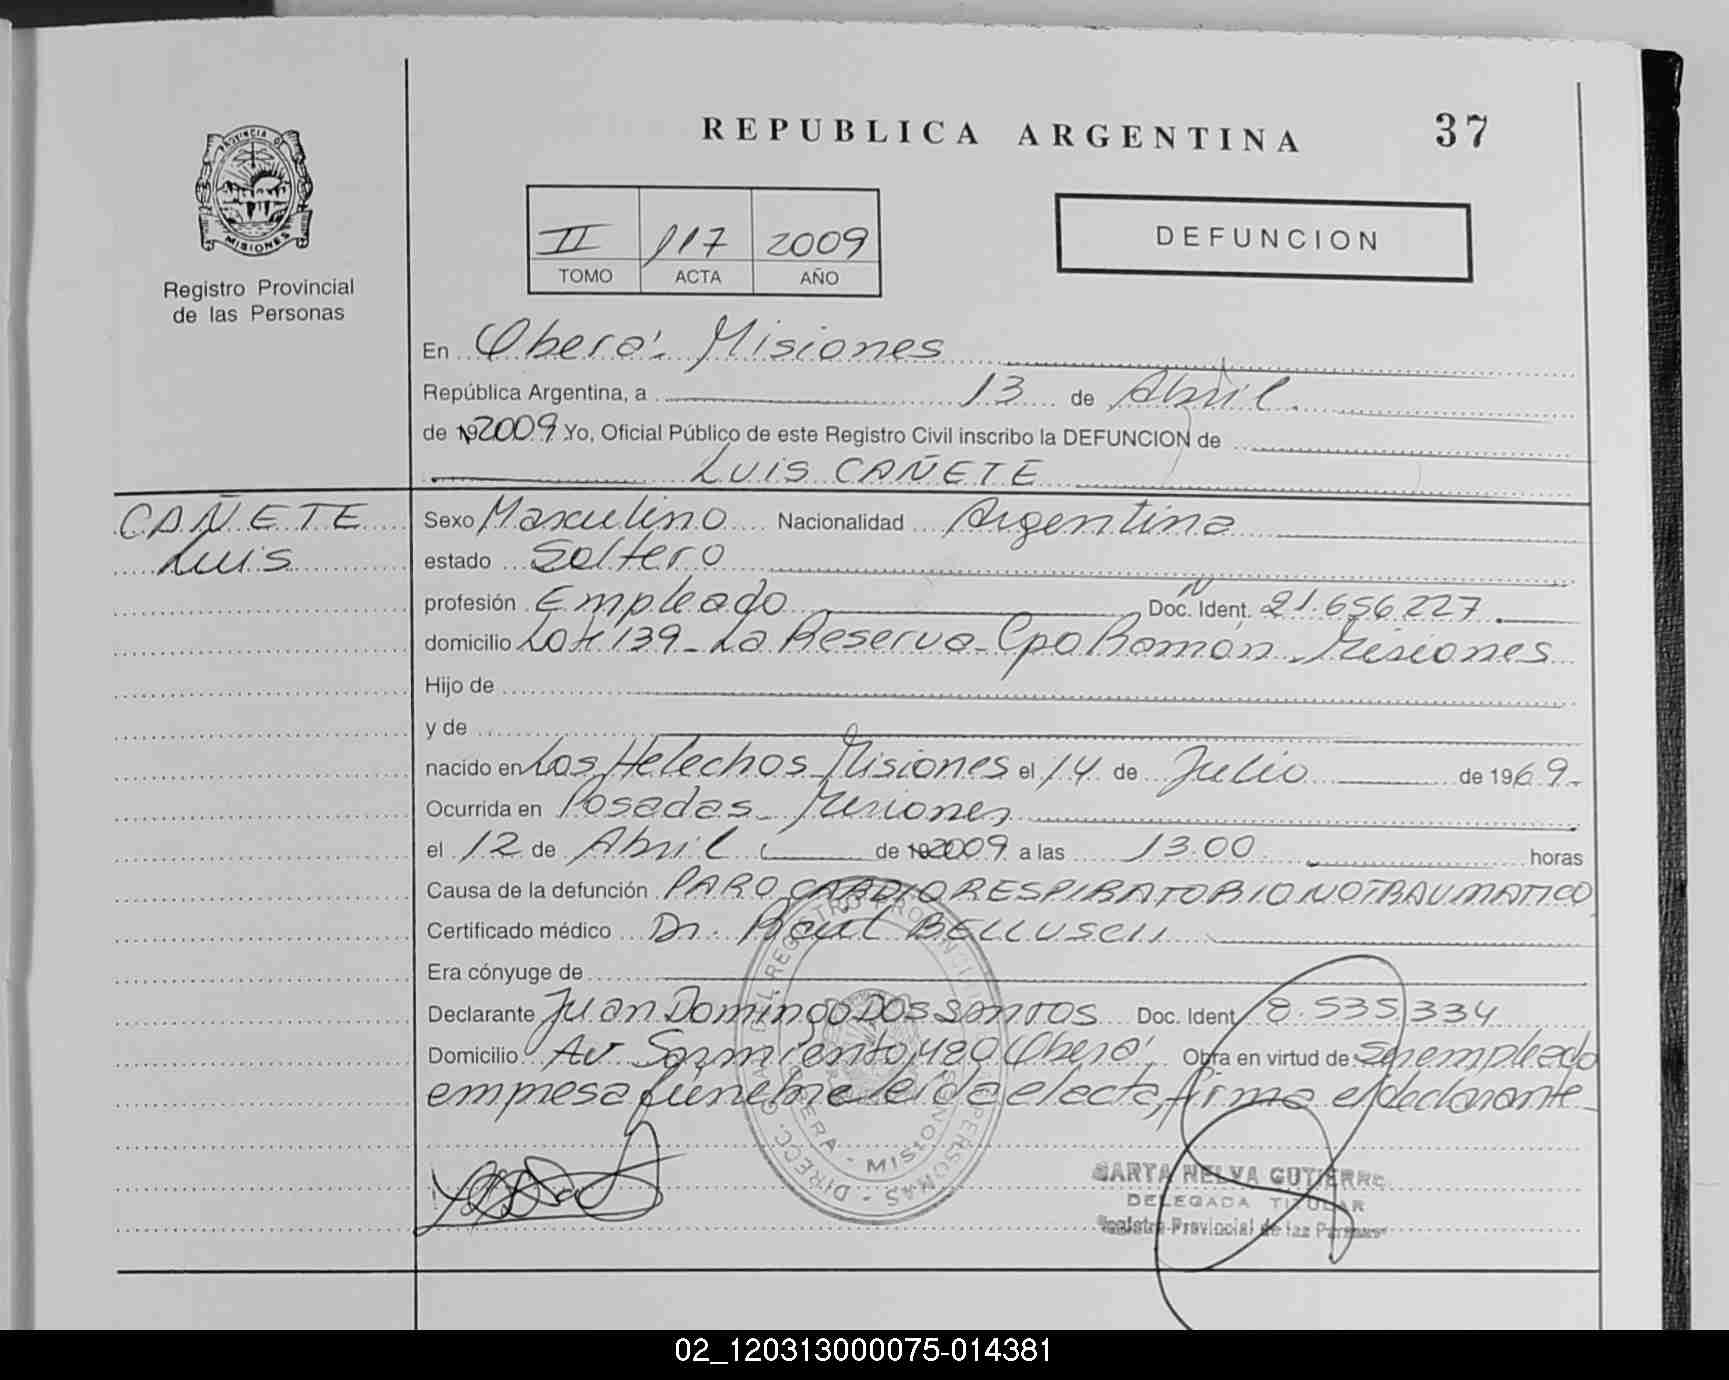 REPUBLICA ARGENTINA
37
PROVINCIA D
MISIONES
Registro Provincial
de las Personas
II 117 2009
TOMO ACTA AÑO
DEFUNCION
En Oberá - Misiones
República Argentina, a 13 de Abril
de 192009 Yo, Oficial Público de este Registro Civil inscribo la DEFUNCION de
LUIS CAÑETE
CAÑETE
Luis
Sexo Masculino Nacionalidad Argentina
estado Soltero
profesión Empleado Doc. Ident. 21.656.227
domicilio Lote 139 - La Reserva - Cpo Ramón - Misiones
Hijo de
y de
nacido en Los Helechos Misiones el 14 de Julio de 1969-
Ocurrida en Posadas - Misiones
el 12 de Abril de 192009 a las 13.00 horas
Causa de la defunción PARO CARDIORESPIRATORIO NO TRAUMATICO
Certificado médico Dr. Raul BELLUSCII
Era cónyuge de
Declarante Juan Domingo DOS SANTOS Doc. Ident 8.535.334
Domicilio Av Sarmiento 480 Oberá Obra en virtud de ser empleado
empresa fúnebre leida el acta, firma el declarante
DIRECC. GRAL. DEL REGISTRO PROVINCIAL PERSONAS
OBERA - MISIONES
NELVA GUTIERRE
DELEGADA TITULAR
Registro Provincial de las Personas
02_120313000075-014381